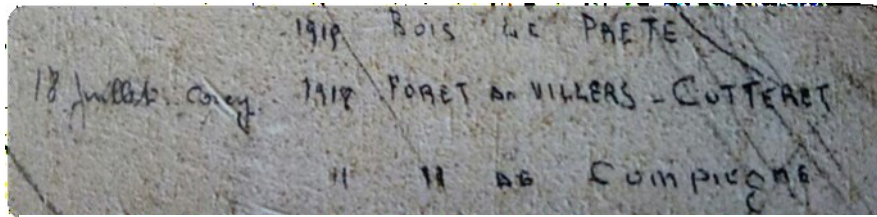 1918 BOIS LE PRETE
18 Juillet. Corcy. 1918 FORET DE VILLERS - COTTERET
" " DE Compiegne